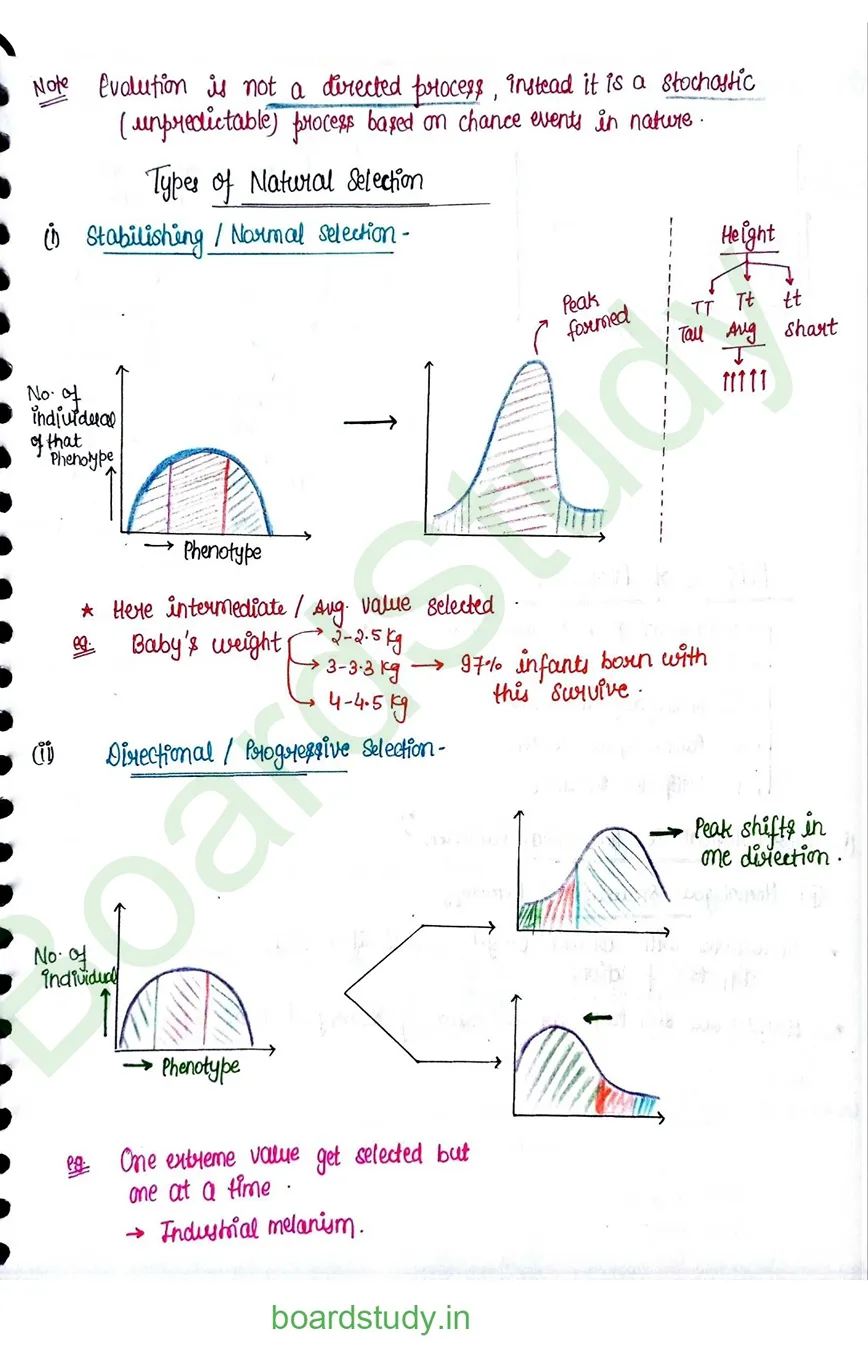 Note Evolution is not a directed process, instead it is a stochastic
(unpredictable) process based on chance events in nature.
Types of Natural Selection
(i) Stabilishing / Normal Selection -
Height
TT Tt tt
Tall Avg Shart
Peak
formed
No. of
individual
of that
Phenotype
→ Phenotype
★ Here intermediate / Avg. value selected
eg. Baby's weight
2-2.5 kg
3-3.3 kg → 97% infants born with
this survive.
4-4.5 kg
(ii) Directional / Progressive Selection -
→ Peak shifts in
one direction.
No. of
individual
→ Phenotype
eg. One extreme value get selected but
one at a time.
→ Industrial melanism.
BoardStudy
boardstudy.in